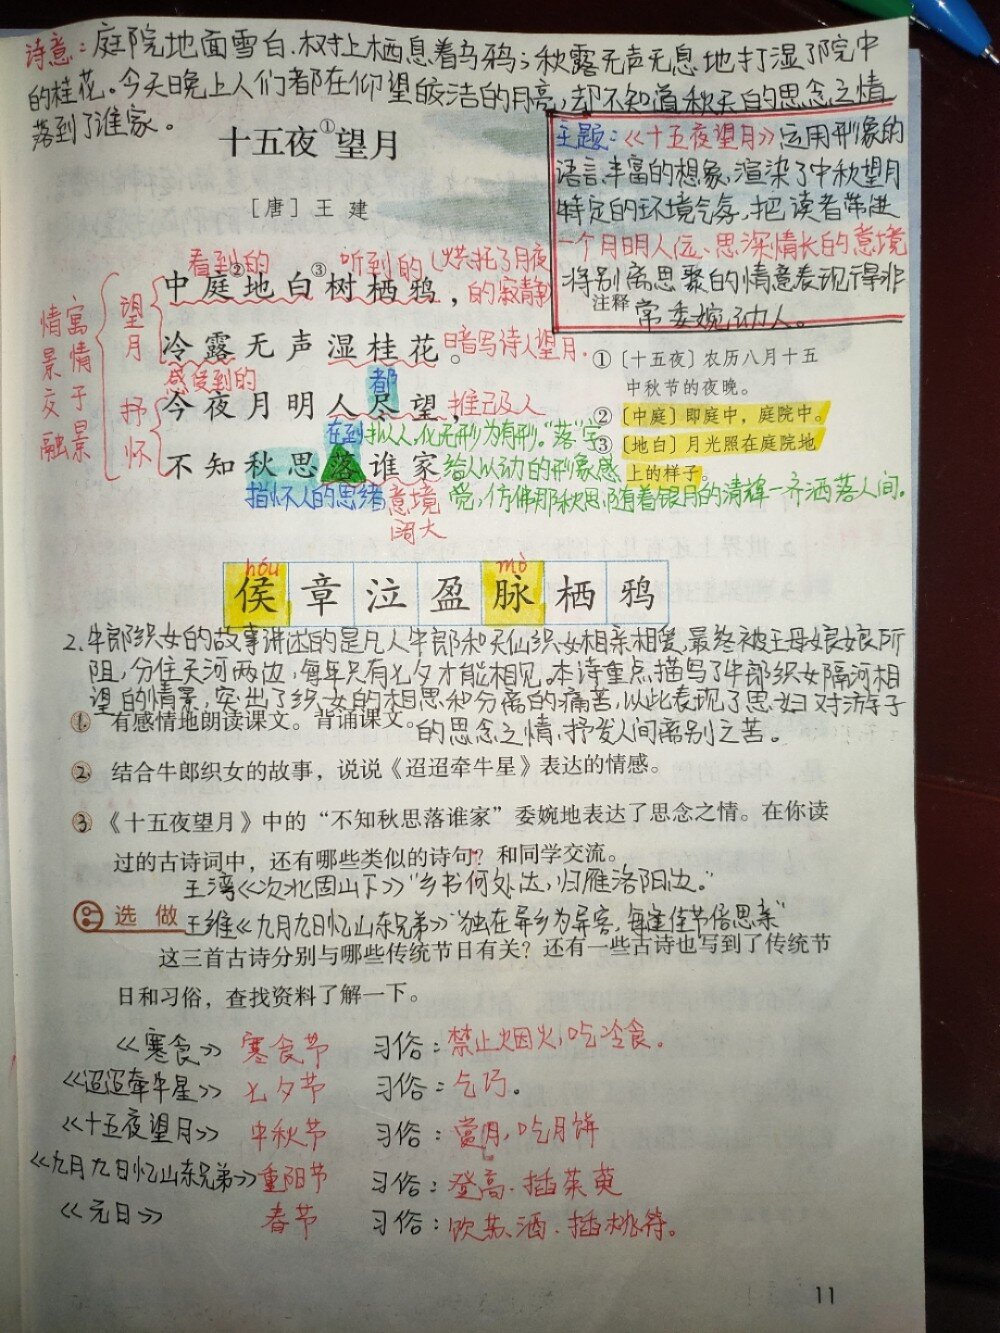 诗意：庭院地面雪白，树上栖息着乌鸦；秋露无声无息地打湿了院中
的桂花。今天晚上人们都在仰望皎洁的月亮，却不知道秋天的思念之情
落到了谁家。
十五夜①望月
[唐] 王建
主题：《十五夜望月》运用形象的
语言，丰富的想象，渲染了中秋望月
特定的环境气氛，把读者带进
一个月明人远、思深情长的意境
将别离思聚的情意表现得非
常委婉动人。
看到的 听到的（烘托了月夜
的寂静
中庭②地白③树栖鸦，
望月
冷露无声湿桂花。
暗写诗人望月.
感受到的
都
今夜月明人尽望，
推己及人
抒怀
在到
拟人，化无形为有形。“落”字
不知秋思落谁家
给人以动的形象感
指怀人的思绪
意境
阔大
觉，仿佛那秋思随着银月的清辉一齐洒落人间。
寓情于景
情景交融
注释
①〔十五夜〕农历八月十五
中秋节的夜晚。
②〔中庭〕即庭中，庭院中。
③〔地白〕月光照在庭院地
上的样子。
hóu mò
侯章泣盈脉栖鸦
2.牛郎织女的故事讲述的是凡人牛郎和天仙织女相亲相爱，最终被王母娘娘所
阻，分住天河两边，每年只有七夕才能相见。本诗重点描写了牛郎织女隔河相
望的情景，突出了织女的相思和分离的痛苦，以此表现了思妇对游子
的思念之情，抒发人间离别之苦。
① 有感情地朗读课文。背诵课文。
② 结合牛郎织女的故事，说说《迢迢牵牛星》表达的情感。
③《十五夜望月》中的“不知秋思落谁家”委婉地表达了思念之情。在你读
过的古诗词中，还有哪些类似的诗句？和同学交流。
王湾《次北固山下》“乡书何处达，归雁洛阳边。”
选做
王维《九月九日忆山东兄弟》“独在异乡为异客，每逢佳节倍思亲”
这三首古诗分别与哪些传统节日有关？还有一些古诗也写到了传统节
日和习俗，查找资料了解一下。
《寒食》 寒食节 习俗：禁止烟火，吃冷食。
《迢迢牵牛星》 七夕节 习俗：乞巧。
《十五夜望月》 中秋节 习俗：赏月，吃月饼
《九月九日忆山东兄弟》重阳节 习俗：登高、插茱萸
《元日》 春节 习俗：饮苏酒、插桃符。
11